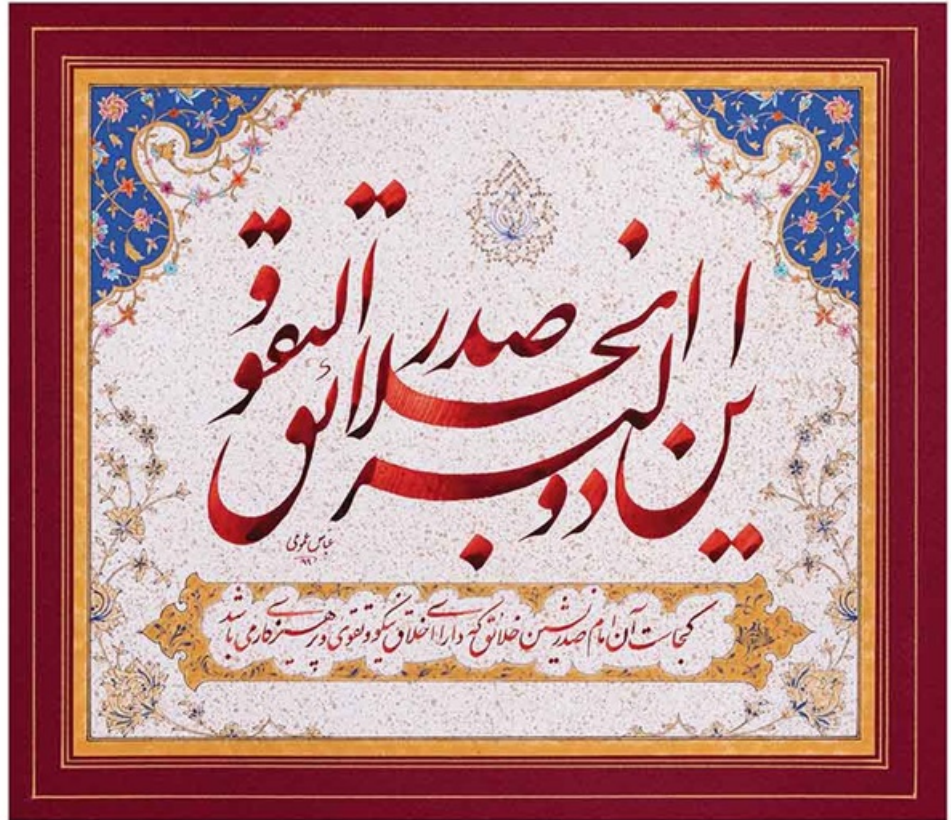 این صدر الخلائق ذو البر و التقوی
عباس
۹۹
کجاست آن امام صدرنشین خلائق که دارای اخلاق نیکو و تقوی و پرهیزکاری باشد